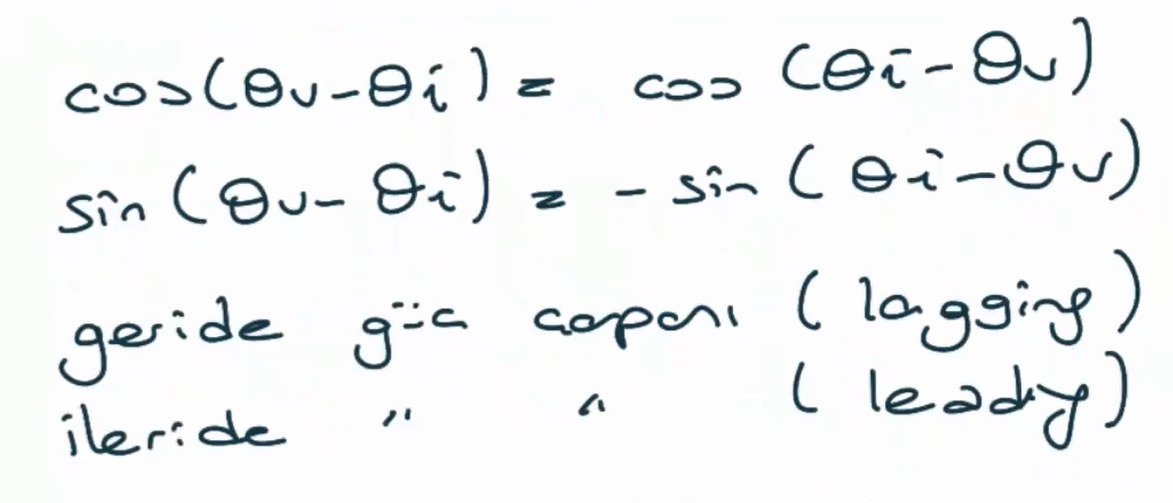 cos(θv-θi) = cos (θi-θv)
sin (θv-θi) = - sin (θi-θv)
geride güç çarpanı (lagging)
ileride " " (leading)